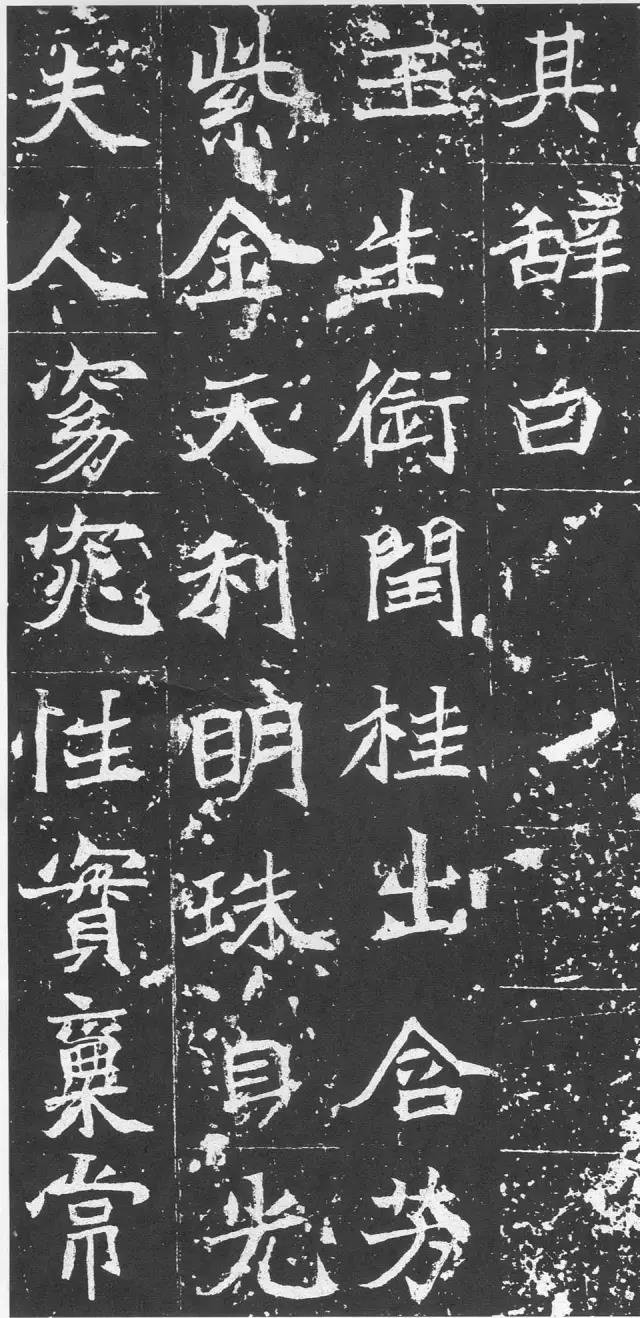 其辞白
玉生銜閏桂出含芳
紫金天利明珠自光
夫人窈窕性實稟常